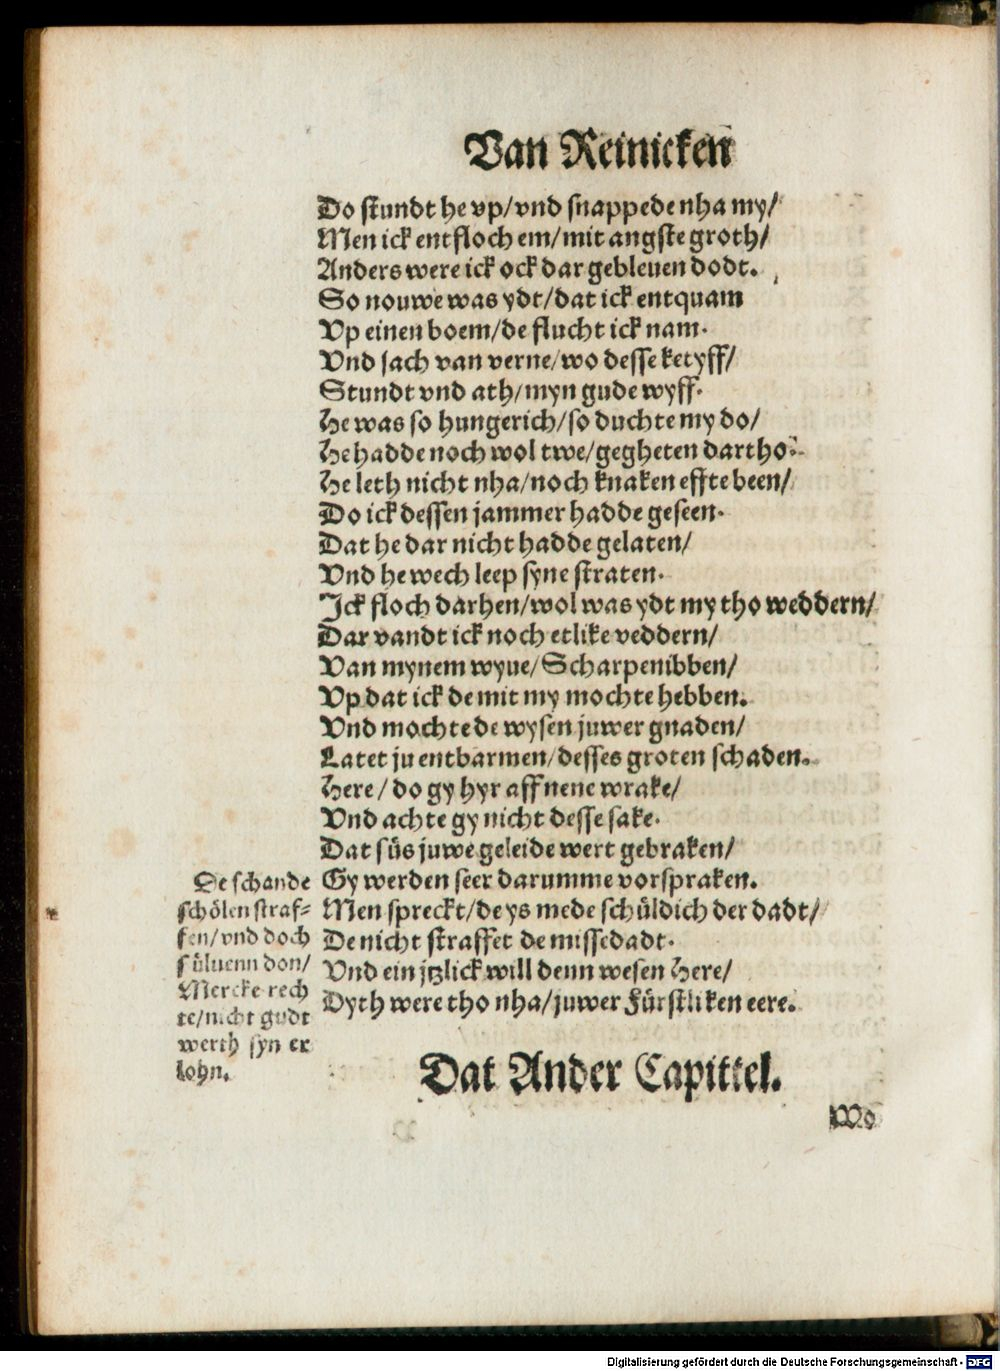 Van Reinicken
Do stundt he vp/vnd snappede nha my/
Men ick entfloch em/mit angste groth/
Anders were ick ock dar gebleuen dodt.
So nouwe was ydt/dat ick entquam
Vp einen boem/de flucht ick nam.
Vnd sach van verne/wo desse ketyff/
Stundt vnd ath/myn gude wyff.
He was so hungerich/so duchte my do/
He hadde noch wol twe/gegheten dartho.
He leth nicht nha/noch knaken effte been/
Do ick dessen jammer hadde geseen.
Dat he dar nicht hadde gelaten/
Vnd he wech leep syne straten.
Ick floch darhen/wol was ydt my tho weddern/
Dar vandt ick noch etlike veddern/
Van mynem wyue/Scharpenibben/
Vp dat ick de mit my mochte hebben.
Vnd mochte de wysen juwer gnaden/
Latet ju entbarmen/desses groten schaden.
Here/do gy hyr aff nene wrake/
Vnd achte gy nicht desse sake.
Dat süs juwe geleide wert gebraken/
Gy werden seer darumme vorspraken.
Men spreckt/de ys mede schüldich der dadt/
De nicht straffet de missedadt.
Vnd ein jtzlick will denn wesen Here/
Dyth were tho nha/juwer Fürstliken eere.
De schande
schölen straf-
fen/vnd doch
süluenn don/
Mercke rech
te/nicht gudt
werth syn er
lohn.
Dat Ander Capittel.
Wo
Digitalisierung gefördert durch die Deutsche Forschungsgemeinschaft - DFG